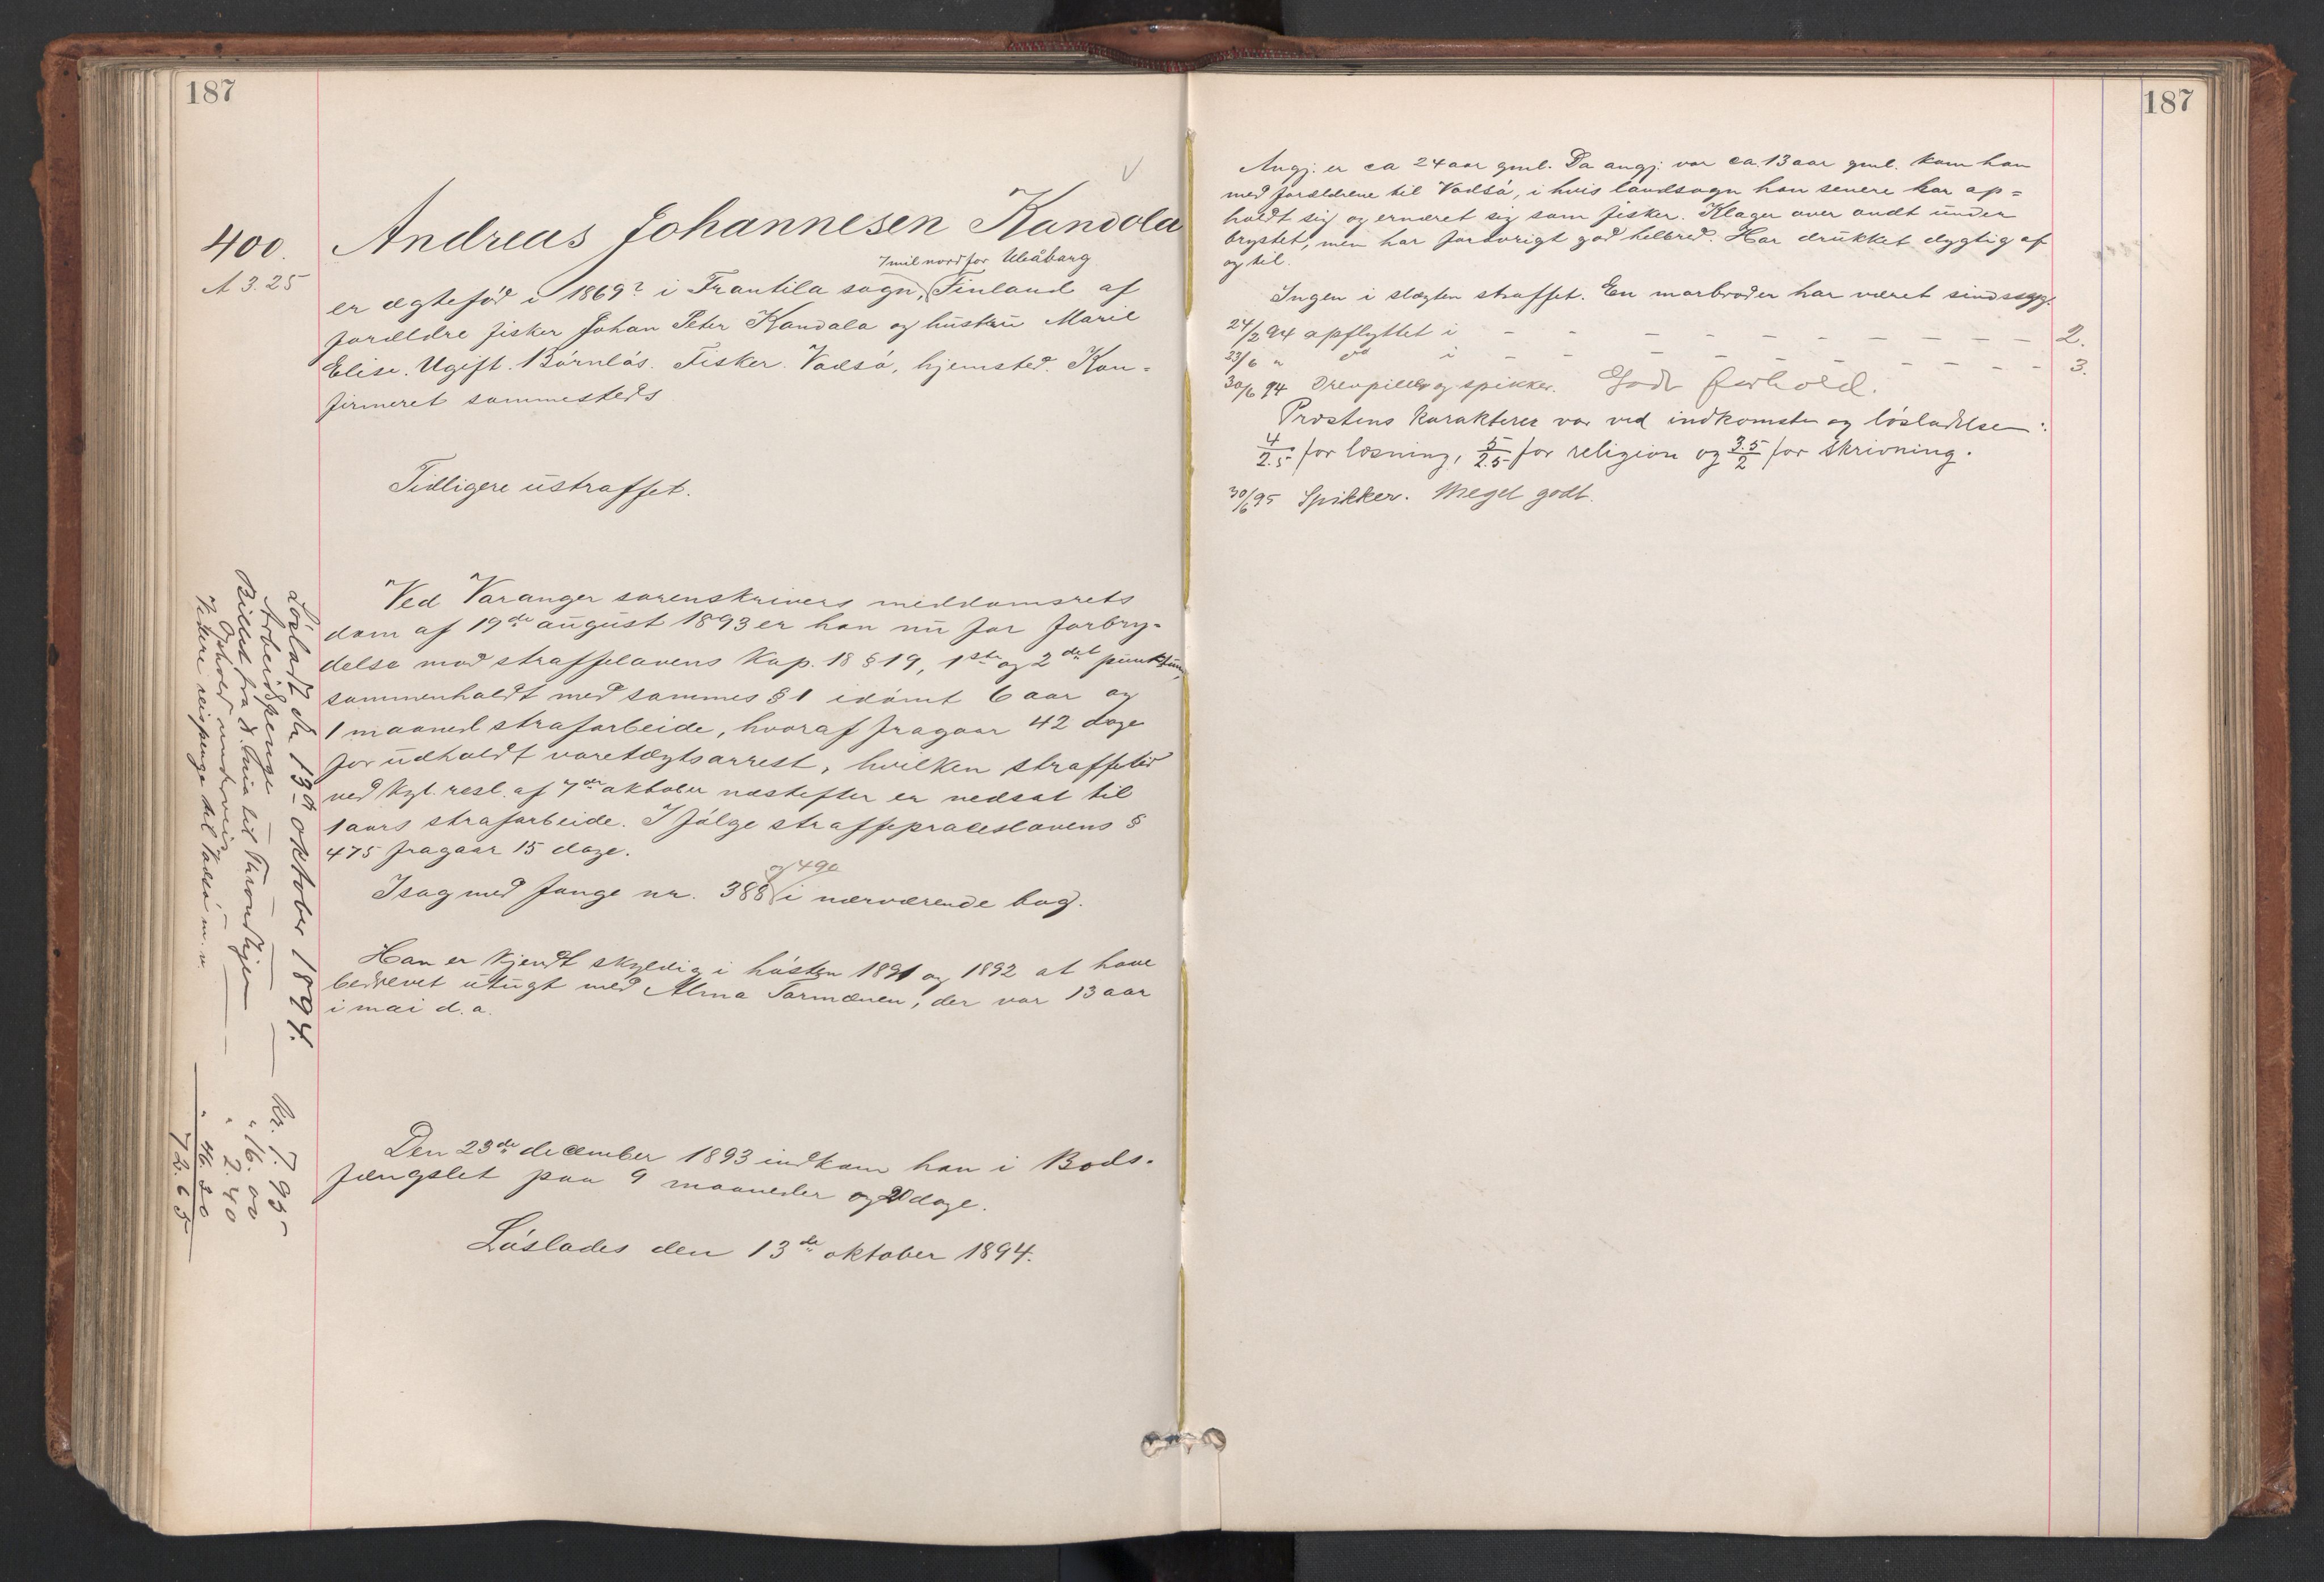 187
400.
A 3.25
Andreas Johannesen Kandola
7 mil nord for Uleåborg
er ægtefød i 1869? i Frantila sogn, Finland af
forældre fisker Johan Peter Kandala og hustru Marie
Elise. Ugift. Børnløs. Fisker. Vadsø, hjemsted. Kon-
firmeret sammesteds
Tidligere ustraffet.
Ved Varanger sorenskrivers meddomsrets
dom af 19de august 1893 er han nu for forbry-
delse mod straffelovens Kap. 18 § 19, 1ste og 2det punktum,
sammenholdt med sammes § 1 idømt 6 aar og
1 maaned strafarbeide, hvoraf fragaar 42 dage
for udholdt varetægtsarrest, hvilken straffetid
ved kgl. resl. af 7de oktober næstefter er nedsat til
1 aars strafarbeide. Ifølge straffeproceslovens §
475 fragaar 15 dage.
og 490
I sag med fange nr. 388 i nærværende bog.
Han er kjendt skyldig i høsten 1891 og 1892 at have
bedrevet utugt med Alma Tarmænen, der var 13 aar
i mai d. a.
Den 23de december 1893 indkom han i Bods-
fængslet paa 9 maaneder og 20 dage.
Løslades den 13de oktober 1894.
Løsladt den 13de oktober 1894.
Arbeidspenge — — — Kr. 7.95
Billet fra X.ania til Throndhjem — " 16.00
Ophold underveis — — " 2.40
Videre reisepenge til Vadsø m. v. " 46.30
72.65
187
Angj. er ca 24 aar gml. Da angj. var ca. 13 aar gml. kom han
med forældrene til Vadsø, i hvis landsogn han senere har op=
holdt sig og ernæret sig som fisker. Klager over ondt under
brystet, men har forøvrigt god helbred. Har drukket dygtig af
og til.
Ingen i slægten straffet. En morbroder har været sindssyg.
24/2 94 opflyttet i — — — — — — — — — 2.
23/6 " do i — — — — — — — — — 3.
30/6 94 Drevpiller og spikker. Godt forhold.
Prestens karakterer var ved indkomsten og løsladelsen:
4/2.5 for læsning, 5/2.5 for religion og 3.5/2 for skrivning.
30/6 95 Spikker. Meget godt.